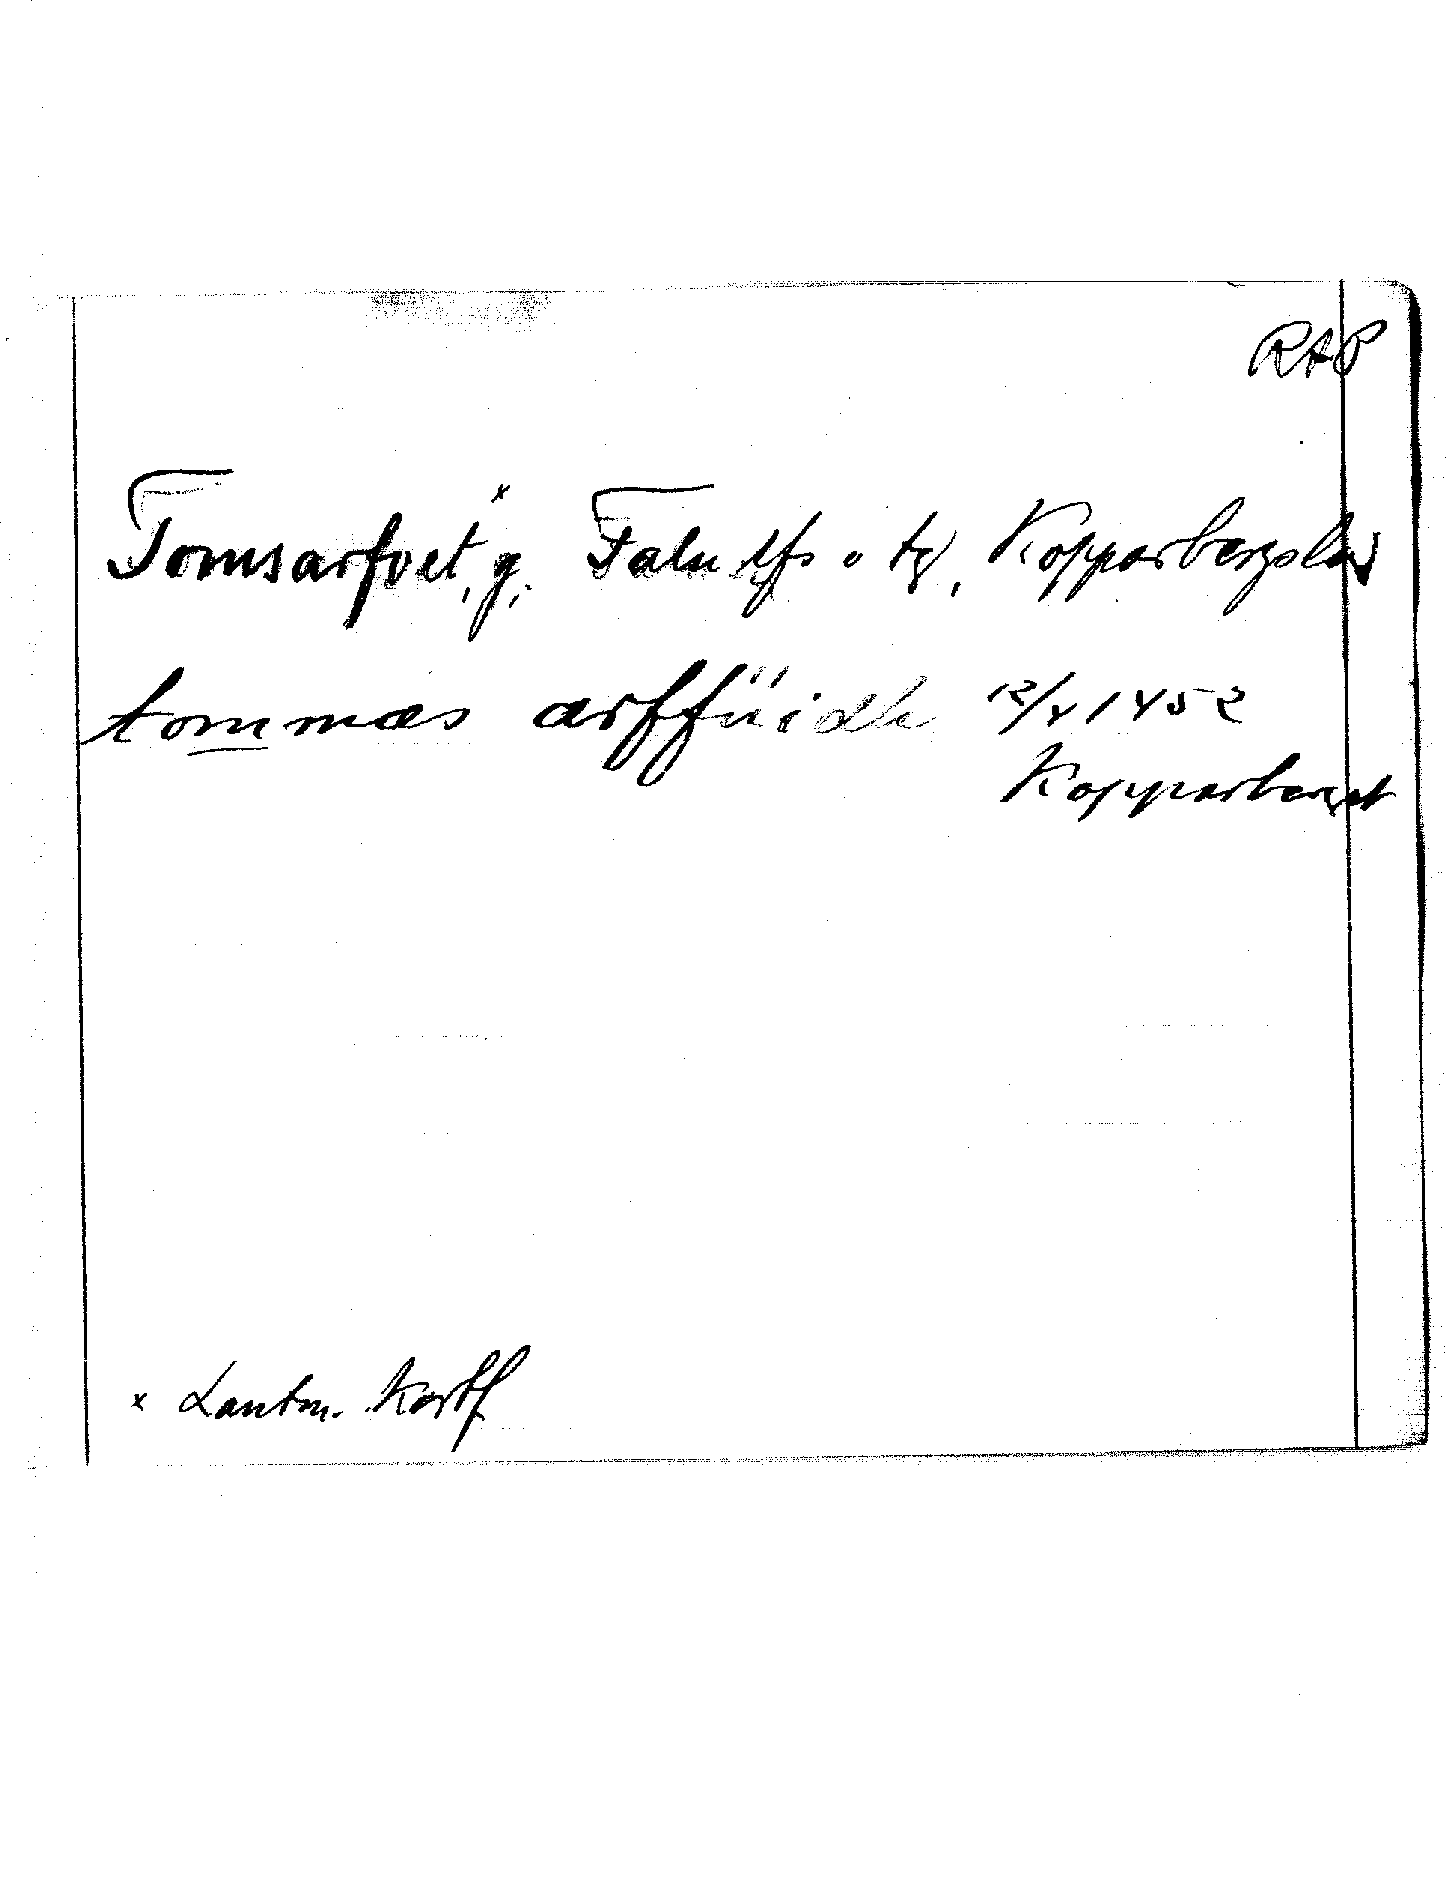 RAP
Tomsarfvet,ˣ g, Falu lfs o tg, Kopparbergs län
tommæs ærffüidh 12/4 1452
Kopparberget
x Lantm. Kartf